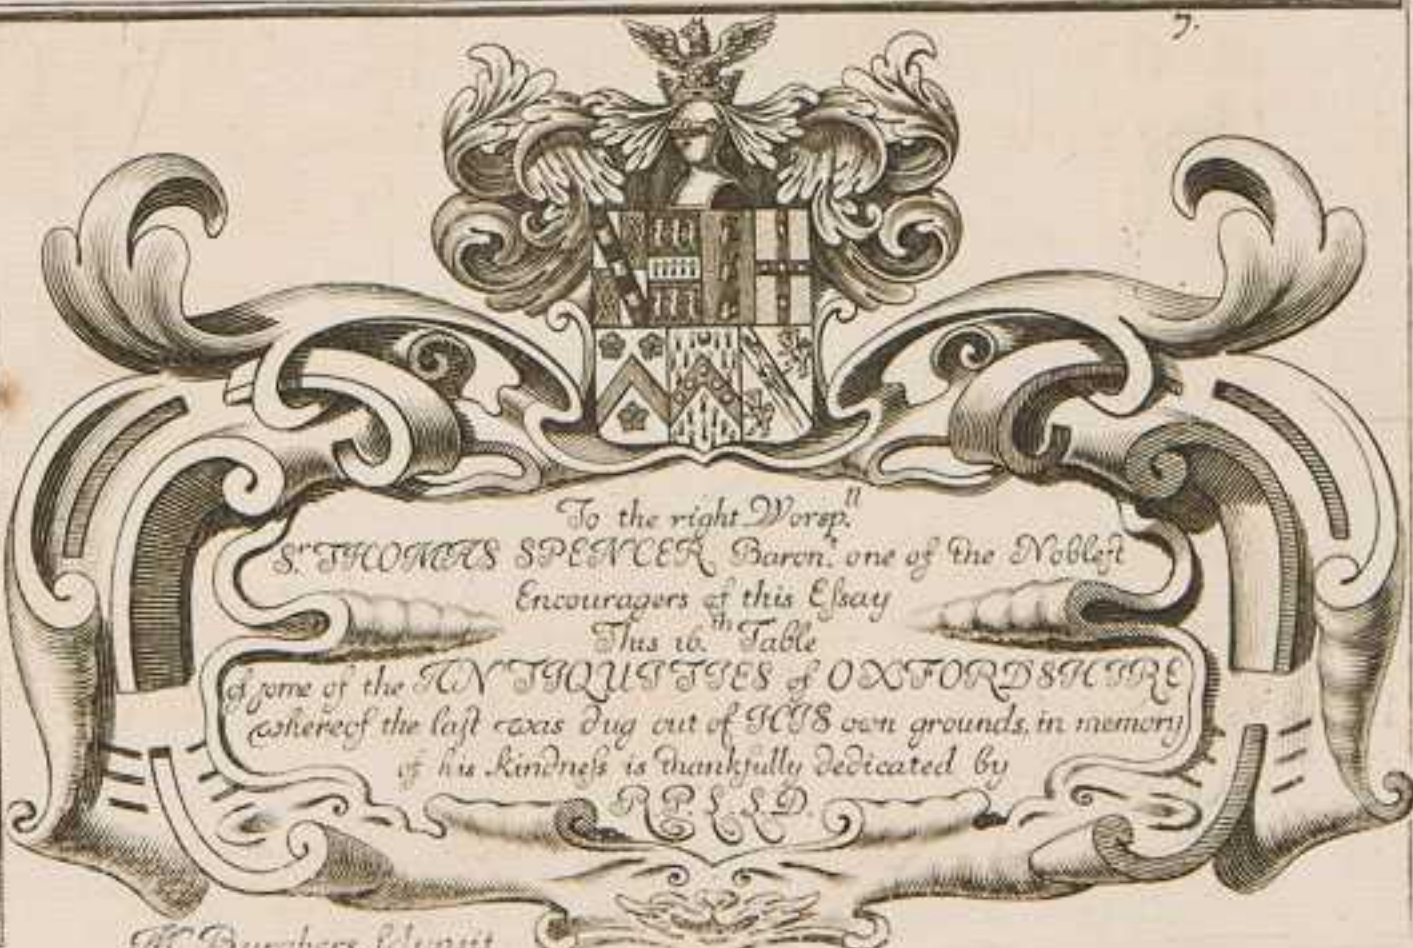 7.
To the right Worsp.ll
Sr. THOMAS SPENCER Baront. one of the Noblest
Encouragers of this Essay
This 16.th Table
of some of the ANTIQUITIES of OXFORDSHIRE
whereof the last was dug out of HIS own grounds, in memory
of his kindness is thankfully dedicated by
R.P.L.L.D.
M Burghers sculpsit